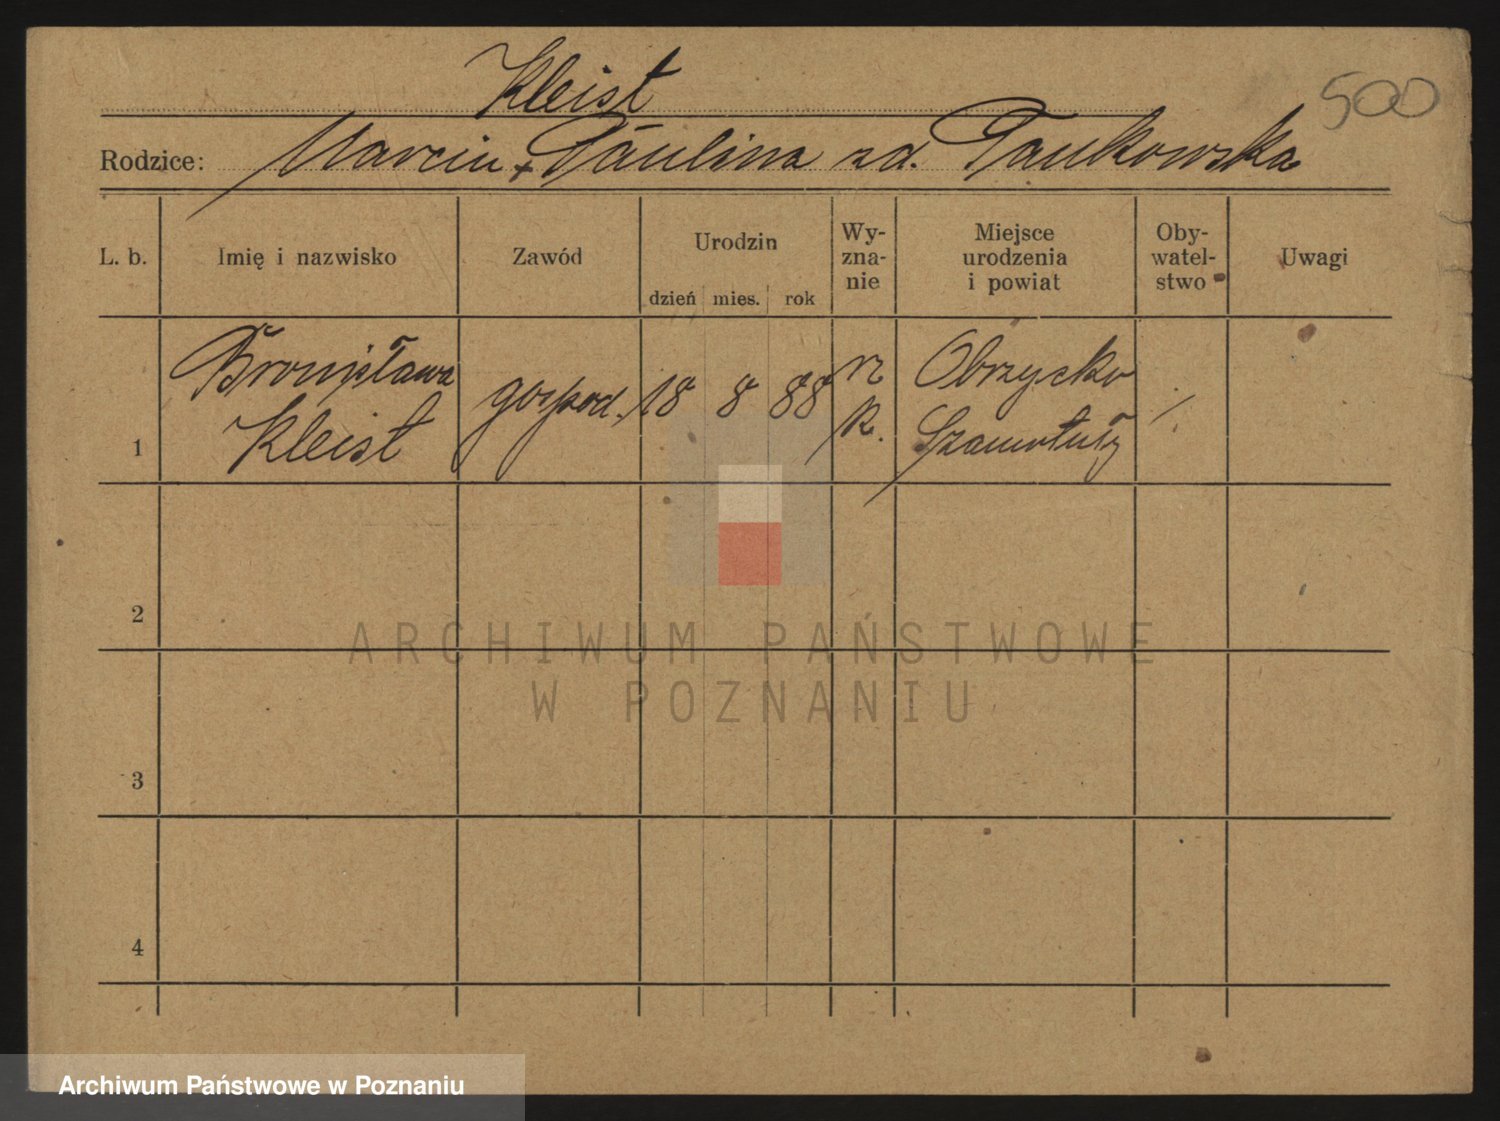 Kleist
500
Rodzice: Marcin + Paulina zd. Pankowska
L. b. Imię i nazwisko Zawód Urodzin dzień mies. rok Wy-zna-nie Miejsce urodzenia i powiat Oby-watel-stwo Uwagi
1 Bronisława Kleist gospod. 18 8 88 rz k. Obrzycko Szamotuły ./.
2
3
4
ARCHIWUM PAŃSTWOWE
W POZNANIU
Archiwum Państwowe w Poznaniu